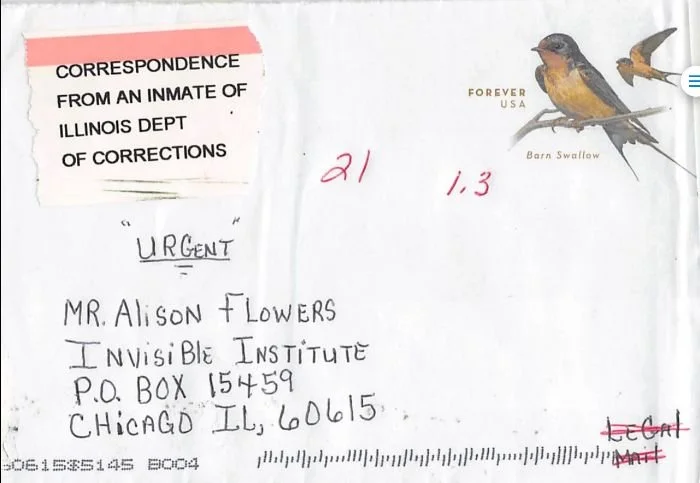 CORRESPONDENCE
FROM AN INMATE OF
ILLINOIS DEPT
OF CORRECTIONS
FOREVER
USA
Barn Swallow
21
1.3
"URGENT"
MR. Alison Flowers
Invisible Institute
P.O. BOX 15459
CHicAGO IL, 60615
LEGAl
MAil
60615%5145 B004